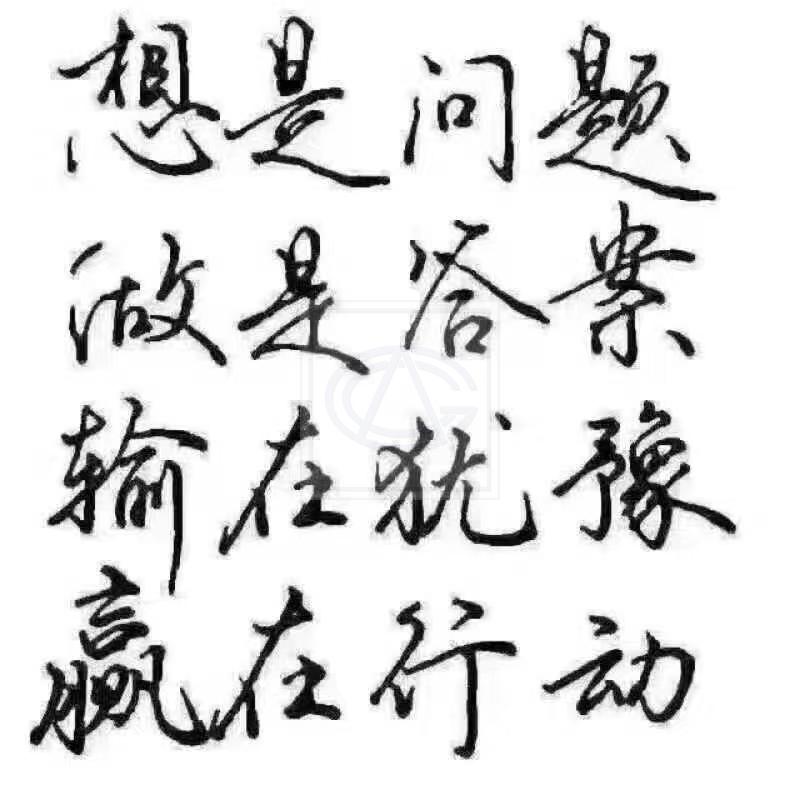 想是问题
做是答案
输在犹豫
赢在行动